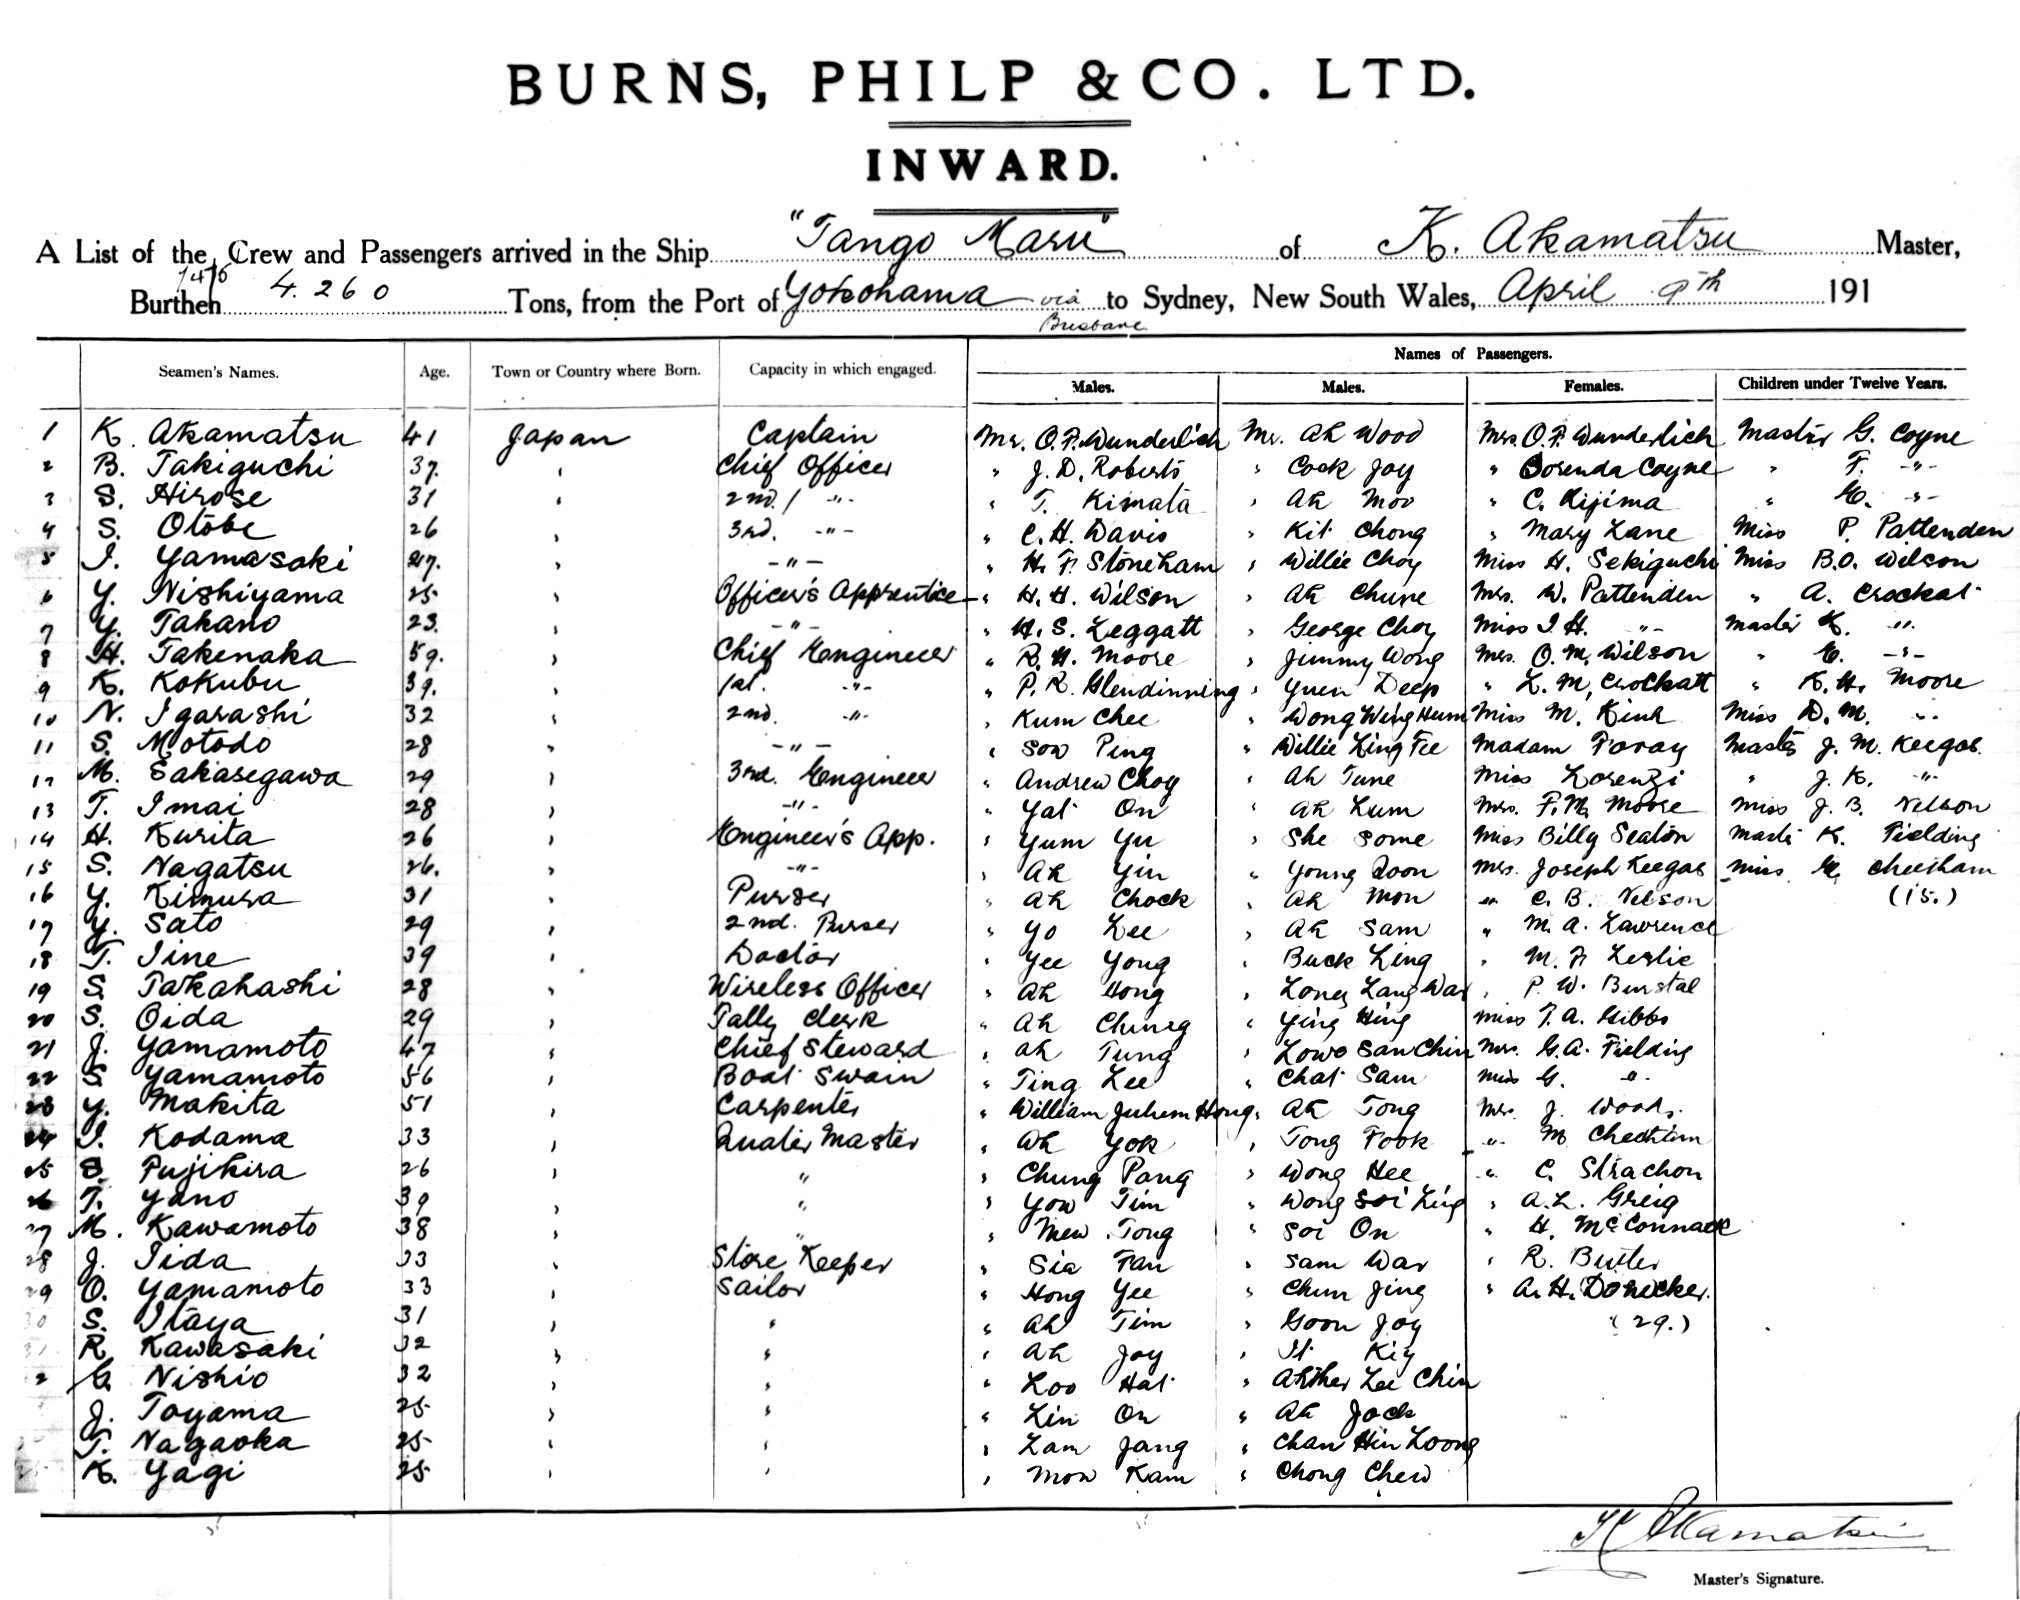 BURNS, PHILP & CO. LTD.
INWARD.
A List of the Crew and Passengers arrived in the Ship "Tango Maru" of K. Akamatsu Master,
Burthen 4.260 Tons, from the Port of Yokohama via Brisbane to Sydney, New South Wales, April 9th 191
Names of Passengers.
Seamen's Names. Age. Town or Country where Born. Capacity in which engaged. Males. Males. Females. Children under Twelve Years.
1 K. Akamatsu 41 Japan Captain Mr. O.F. Wunderlich Mr. Ah Wood Mrs. O.F. Wunderlich Master G. Coyne
2 B. Takiguchi 37. " Chief Officer " J. D. Roberts " Cock Joy " Coyne " F. -"-
3 S. Hirose 31 " 2nd. / -"- " T. Kimata " Ah Moo " C. Kijima " E. -"-
4 S. Otobe 26 " 3rd. -"- " C. H. Davis " Kit Chong " Mary Lane Miss P. Pattenden
5 I. Yamasaki 27. " -"- " H. F. Stoneham " Willie Choy Miss H. Sekiguchi Miss B.O. Wilson
6 Y. Nishiyama 25 " Officer's Apprentice " H. H. Wilson " Ah Chune Mrs. W. Pattenden " A. Crockat
7 Y. Takano 23. " -"- " H. S. Leggatt " George Choy Miss I. H. -"- Master K. "
8 H. Takenaka 59. " Chief Engineer " R. H. Moore " Jimmy Wong Mrs. O. M. Wilson " E. -"-
9 K. Kokubu 39. " 1st. -"- " P. R. Glendinning " Yuen Deep " L. M. Crockatt " K. H. Moore
10 N. Igarashi 32 " 2nd. -"- " Kum Chee " Wong Wing Hum Miss M. Kink Miss D. M. "
11 S. Motodo 28 " -"- " Sow Ping " Willie Ling Fee Madam Foray Master J. M. Keegas.
12 M. Sakasegawa 29 " 3rd. Engineer " Andrew Choy " Ah Tune Miss Lorenzi " J. K. "
13 T. Imai 28 " -"- " Yat On " Ah Lum Mrs. F. M. Moore Miss J. B. Nelson
14 H. Kurita 26 " Engineer's App. " Yum Yu " She Some Miss Billy Seaton K. Fielding
15 S. Nagatsu 26. " -"- " Ah Yin " Young Mrs. Joseph Keegas Miss Cheetham
16 Y. Kimura 31 " Purser " Ah Chock " Ah Mon " C. B. Nelson (15.)
17 Y. Sato 29 " 2nd. Purser " Yo Lee " Ah Sam " M. A. Lawrence
18 T. Iine 39 " Doctor " Yee Yong " Buck Ling " M. F. Leslie
19 S. Takahashi 28 " Wireless Officer " Ah Hong " Long Lang War " P. W. Burstal
20 S. Oida 29 " Tally Clerk " Ah Chung " Ying Hing Miss T. A. Gibbs
21 J. Yamamoto 47 " Chief Steward " Ah Tung " Lowe San Chin Mrs. G. A. Fielding
22 S. Yamamoto 56 " Boat Swain " Ting Lee " Chat Sam Miss G. "
23 Y. Makita 51 " Carpenter " William Hong " Ah Tong Mrs. J. Woods.
24 I. Kodama 33 " Quater Master " Ah Yok " Tong Fook " M. Cheetham
25 S. Fujihira 26 " " " Chung Pang " Wong Hee " C. Strachon
26 T. Yano 39 " " " Yow Tim " Wong Soi Ling " A. L. Greig
27 M. Kawamoto 38 " " " Mew Tong " Soi On " H. McConnack
28 J. Iida 33 " Store Keeper " Sia Fan " Sam War " R. Butler
29 O. Yamamoto 33 " Sailor " Hong Yee " Chun Jing " A. H. Donecker.
30 S. Itaya 31 " " " Ah Tim " Goon Joy (29.)
31 R. Kawasaki 32 " " " Ah Joy " It Kiy
2 G. Nishio 32 " " " Loo Hat " Lee Chin
J. Toyama 25 " " " Lin On " Ah Jock
T. Nagaoka 25 " " " Lam Jang " Chan Hin Loong
K. Yagi 25 " " " Mow Kam " Chong Chew
K. Akamatsu
Master's Signature.